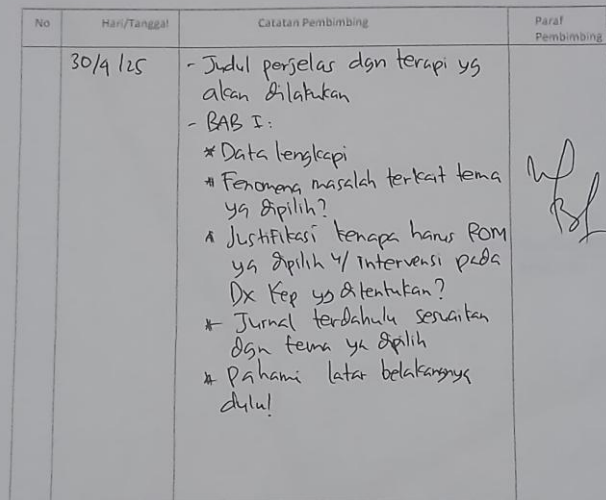 No Hari/Tanggal Catatan Pembimbing Paraf
Pembimbing
30/9/25 - Judul perjelas dgn terapi yg
akan dilakukan
- BAB I:
* Data lengkapi
* Fenomena masalah terkait tema
yg dipilih?
* Justifikasi kenapa harus ROM
yg dipilih u/ intervensi pada
Dx Kep yg ditentukan?
* Jurnal terdahulu sesuaikan
dgn tema yg dipilih
* Pahami latar belakangnya
dulu!